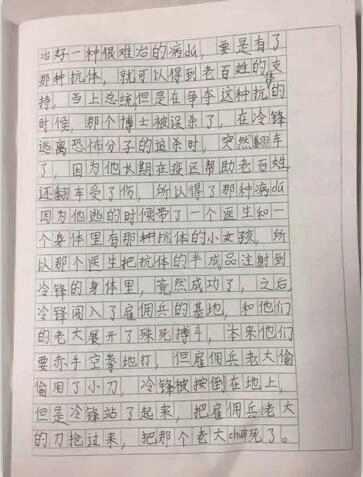 治好一种很难治的病dú，要是有了
那种抗体，就可以得到老百姓的支
持，当上总统但是在争夺这种抗的
时候，那个博士被误杀了，在冷锋
逃离恐怖分子的追杀时，突然翻车
了，因为他长期在疫区帮助老百姓
还翻车受了伤，所以得了那种病dú
因为他逃的时候带了一个医生和一
个身体里有那种抗体的小女孩，所
以那个医生把抗体的半成品注射到
冷锋的身体里，竟然成功了，之后
冷锋闯入了雇佣兵的基地，和他们
的老大展开了殊死搏斗，本来他们
要赤手空拳地打，但雇佣兵老大偷
偷用了小刀，冷锋被按倒在地上，
但是冷锋站了起来，把雇佣兵老大
的刀抢过来，把那个老大 死了。